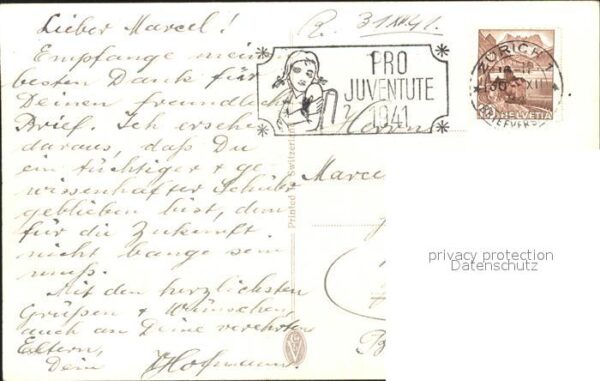 Lieber Marcel!
Empfange meinen
besten Dank für
Deinen freundlichen
Brief. Ich ersehe
daraus, daß Du
ein tüchtiger & ge-
wissenhafter Schüler
geblieben bist, dem
für die Zukunft
nicht bange sein
muß.
Mit den herzlichsten
Grüßen & Wünschen,
auch an Deine verehrten
Eltern,
Dein
Hofmann.
R. 31.XII.41.
PRO
JUVENTUTE
1941
ZÜRICH 1
HELVETIA
Printed in Switzerland
Herrn
Marcel
privacy protection
Datenschutz